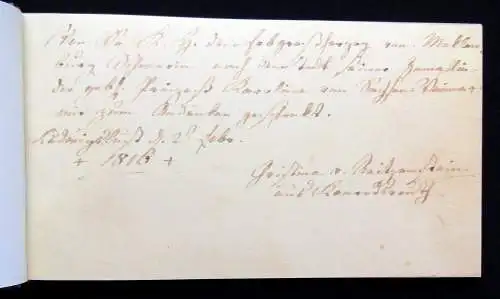 Von Sr. K. H. dem Erbgroßherzog von Mecklen-
burg Schwerin nach dem Tode seiner Gemahlin
der geb. Prinzeß Karoline von Sachsen Weimar +
mir zum Andenken geschenkt.
Ludwigslust d. 2t Febr.
+ 1816 +
Christine v. Reitzenstein
aus